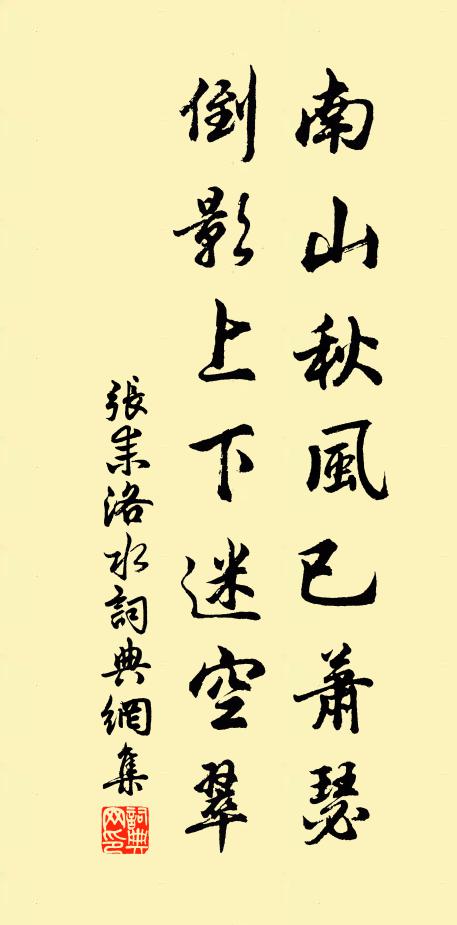 南山秋風已蕭瑟
倒影上下迷空翠
張耒洛水詞典網集
詞典網印